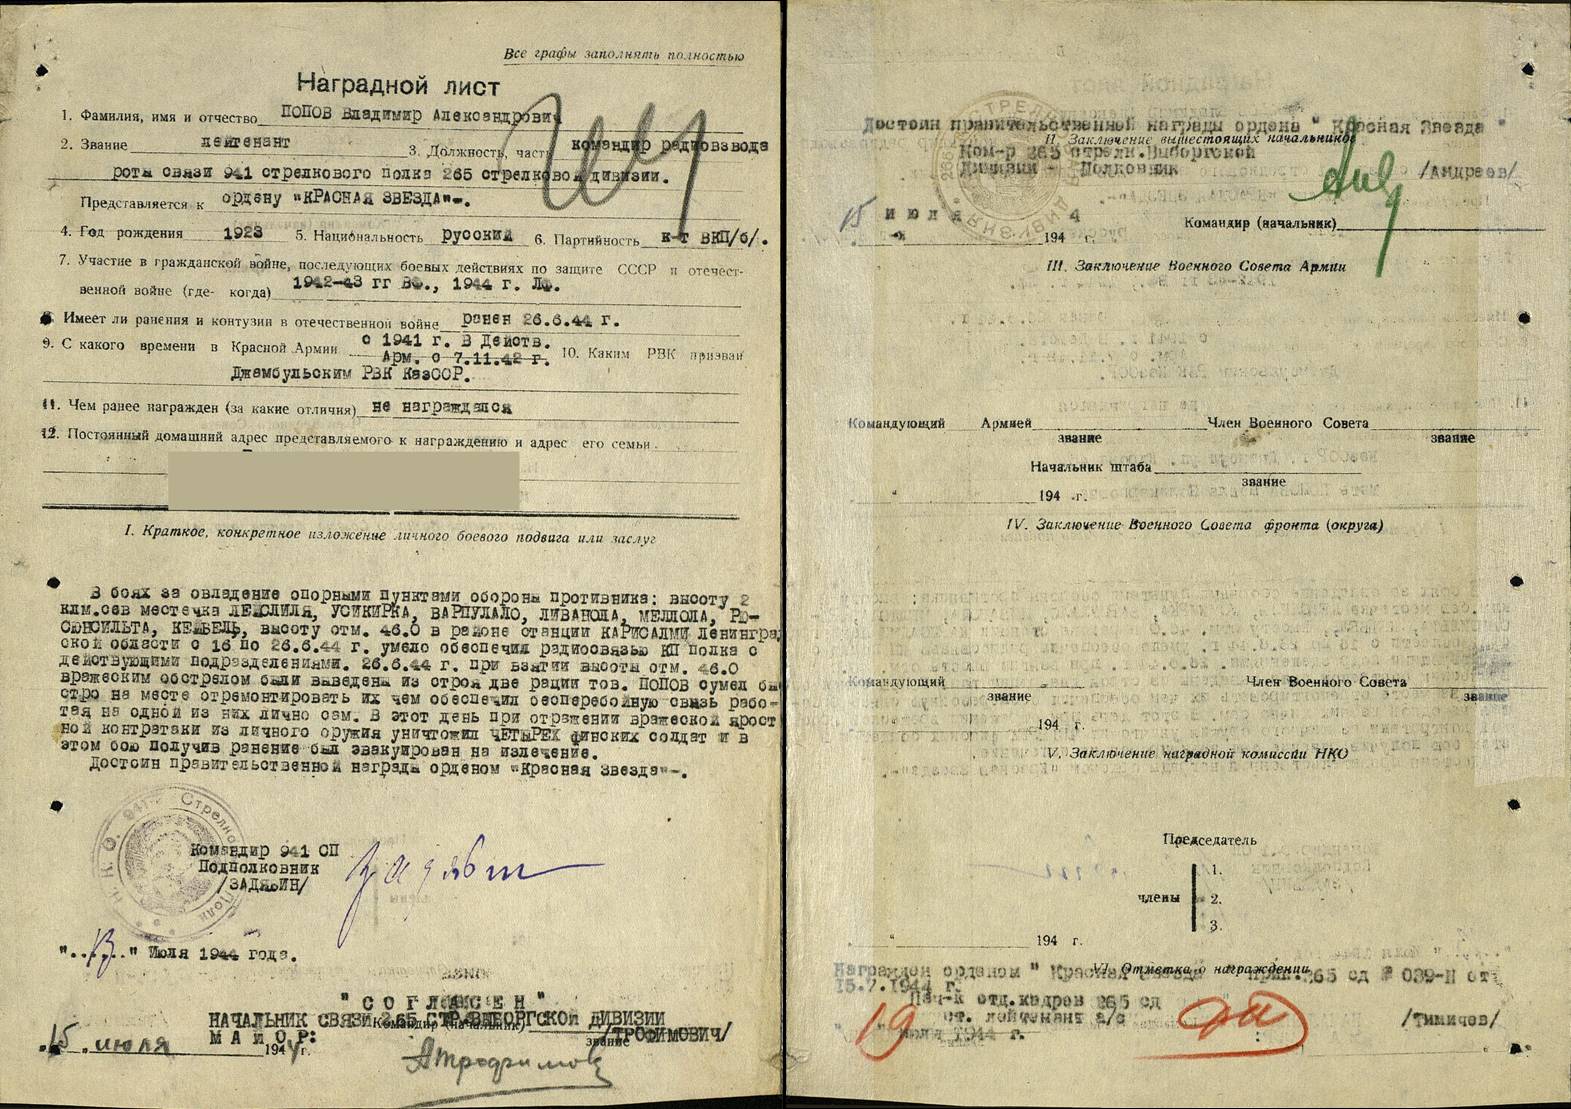 Все графы заполнять полностью
Наградной лист
1. Фамилия, имя и отчество ПОПОВ Владимир Александрович
2. Звание лейтенант 3. Должность, часть командир радиовзвода
роты связи 941 стрелкового полка 265 стрелковой дивизии.
Представляется к ордену "КРАСНАЯ ЗВЕЗДА"-.
4. Год рождения 1923 5. Национальность русский 6. Партийность к-т ВКП/б/.
7. Участие в гражданской войне, последующих боевых действиях по защите СССР и отечест-
венной войне (где- когда) 1942-43 гг ВФ., 1944 г. ЛФ.
Имеет ли ранения и контузии в отечественной войне ранен 26.6.44 г.
9. С какого времени в Красной Армии с 1941 г. В Действ.
Арм. с 7.11.42 г. 10. Каким РВК призван
Джамбульским РВК КазССР.
11. Чем ранее награжден (за какие отличия) не награждался
12. Постоянный домашний адрес представляемого к награждению и адрес его семьи.
I. Краткое, конкретное изложение личного боевого подвига или заслуг
В боях за овладение опорными пунктами обороны противника: высоту 2
клм.сев местечка ЛЕЙСЛИЛЯ, УСИКИРКА, ВАРПУЛАЛО, ЛИВАНОЛА, МЕЛЛОЛА, РЮ-
СЮНСИЛЬТА, высоту отм. 46.0 в районе станции КАРИСАЛМИ Ленинград
ской области с 16 по 26.6.44 г. умело обеспечил радиосвязью КП полка с
действующими подразделениями. 26.6.44 г. при взятии высоты отм. 46.0
вражеским обстрелом были выведены из строя две рации тов. ПОПОВ сумел бы
стро на месте отремонтировать их чем обеспечил бесперебойную связь рабо-
тая на одной из них лично сам. В этот день при отражении вражеской ярост
ной контратаки из личного оружия уничтожил ЧЕТЫРЕХ финских солдат и в
этом бою получив ранение был эвакуирован на излечение.
Достоин правительственной награды орденом "Красная Звезда"-.
Командир 941 СП
Подполковник
/ЗАДЯБИН/
"..13.." Июля 1944 года.
"СОГЛАСЕН"
НАЧАЛЬНИК СВЯЗИ 265 СТР.ВЫБОРГСКОЙ ДИВИЗИИ
Командир (начальник)
МАЙОР: звание /ТРОФИМОВИЧ/
15. июля 1944 г.
Достоин правительственной награды ордена "Красная Звезда"
II. Заключение вышестоящих начальников
Ком-р 265 стрелк.Выборгской
Дивизии - Полковник /Андреев/
15 июля 4
194 г. Командир (начальник)
III. Заключение Военного Совета Армии
Командующий Армией Член Военного Совета
звание звание
Начальник штаба
звание
" 194 г.
IV. Заключение Военного Совета фронта (округа)
Командующий Член Военного Совета
звание звание
" 194 г.
V. Заключение наградной комиссии НКО
Председатель
1.
члены 2.
3.
" 194 г.
VI. Отметка о награждении
Награжден орденом "Красная Звезда" Прик.265 сд № 039-Н от
15.7.1944 г.
Нач-к отд.кадров 265 сд
ст. лейтенант а/с /Тимичев/
19 июля 1944 г.